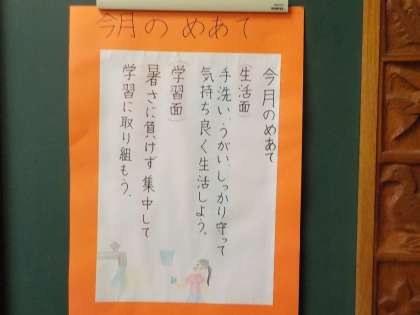 今月のめあて
今月のめあて
（生活面）
手洗い、うがい、しっかり守って
気持ち良く生活しよう。
（学習面）
暑さに負けず集中して
学習に取り組もう。